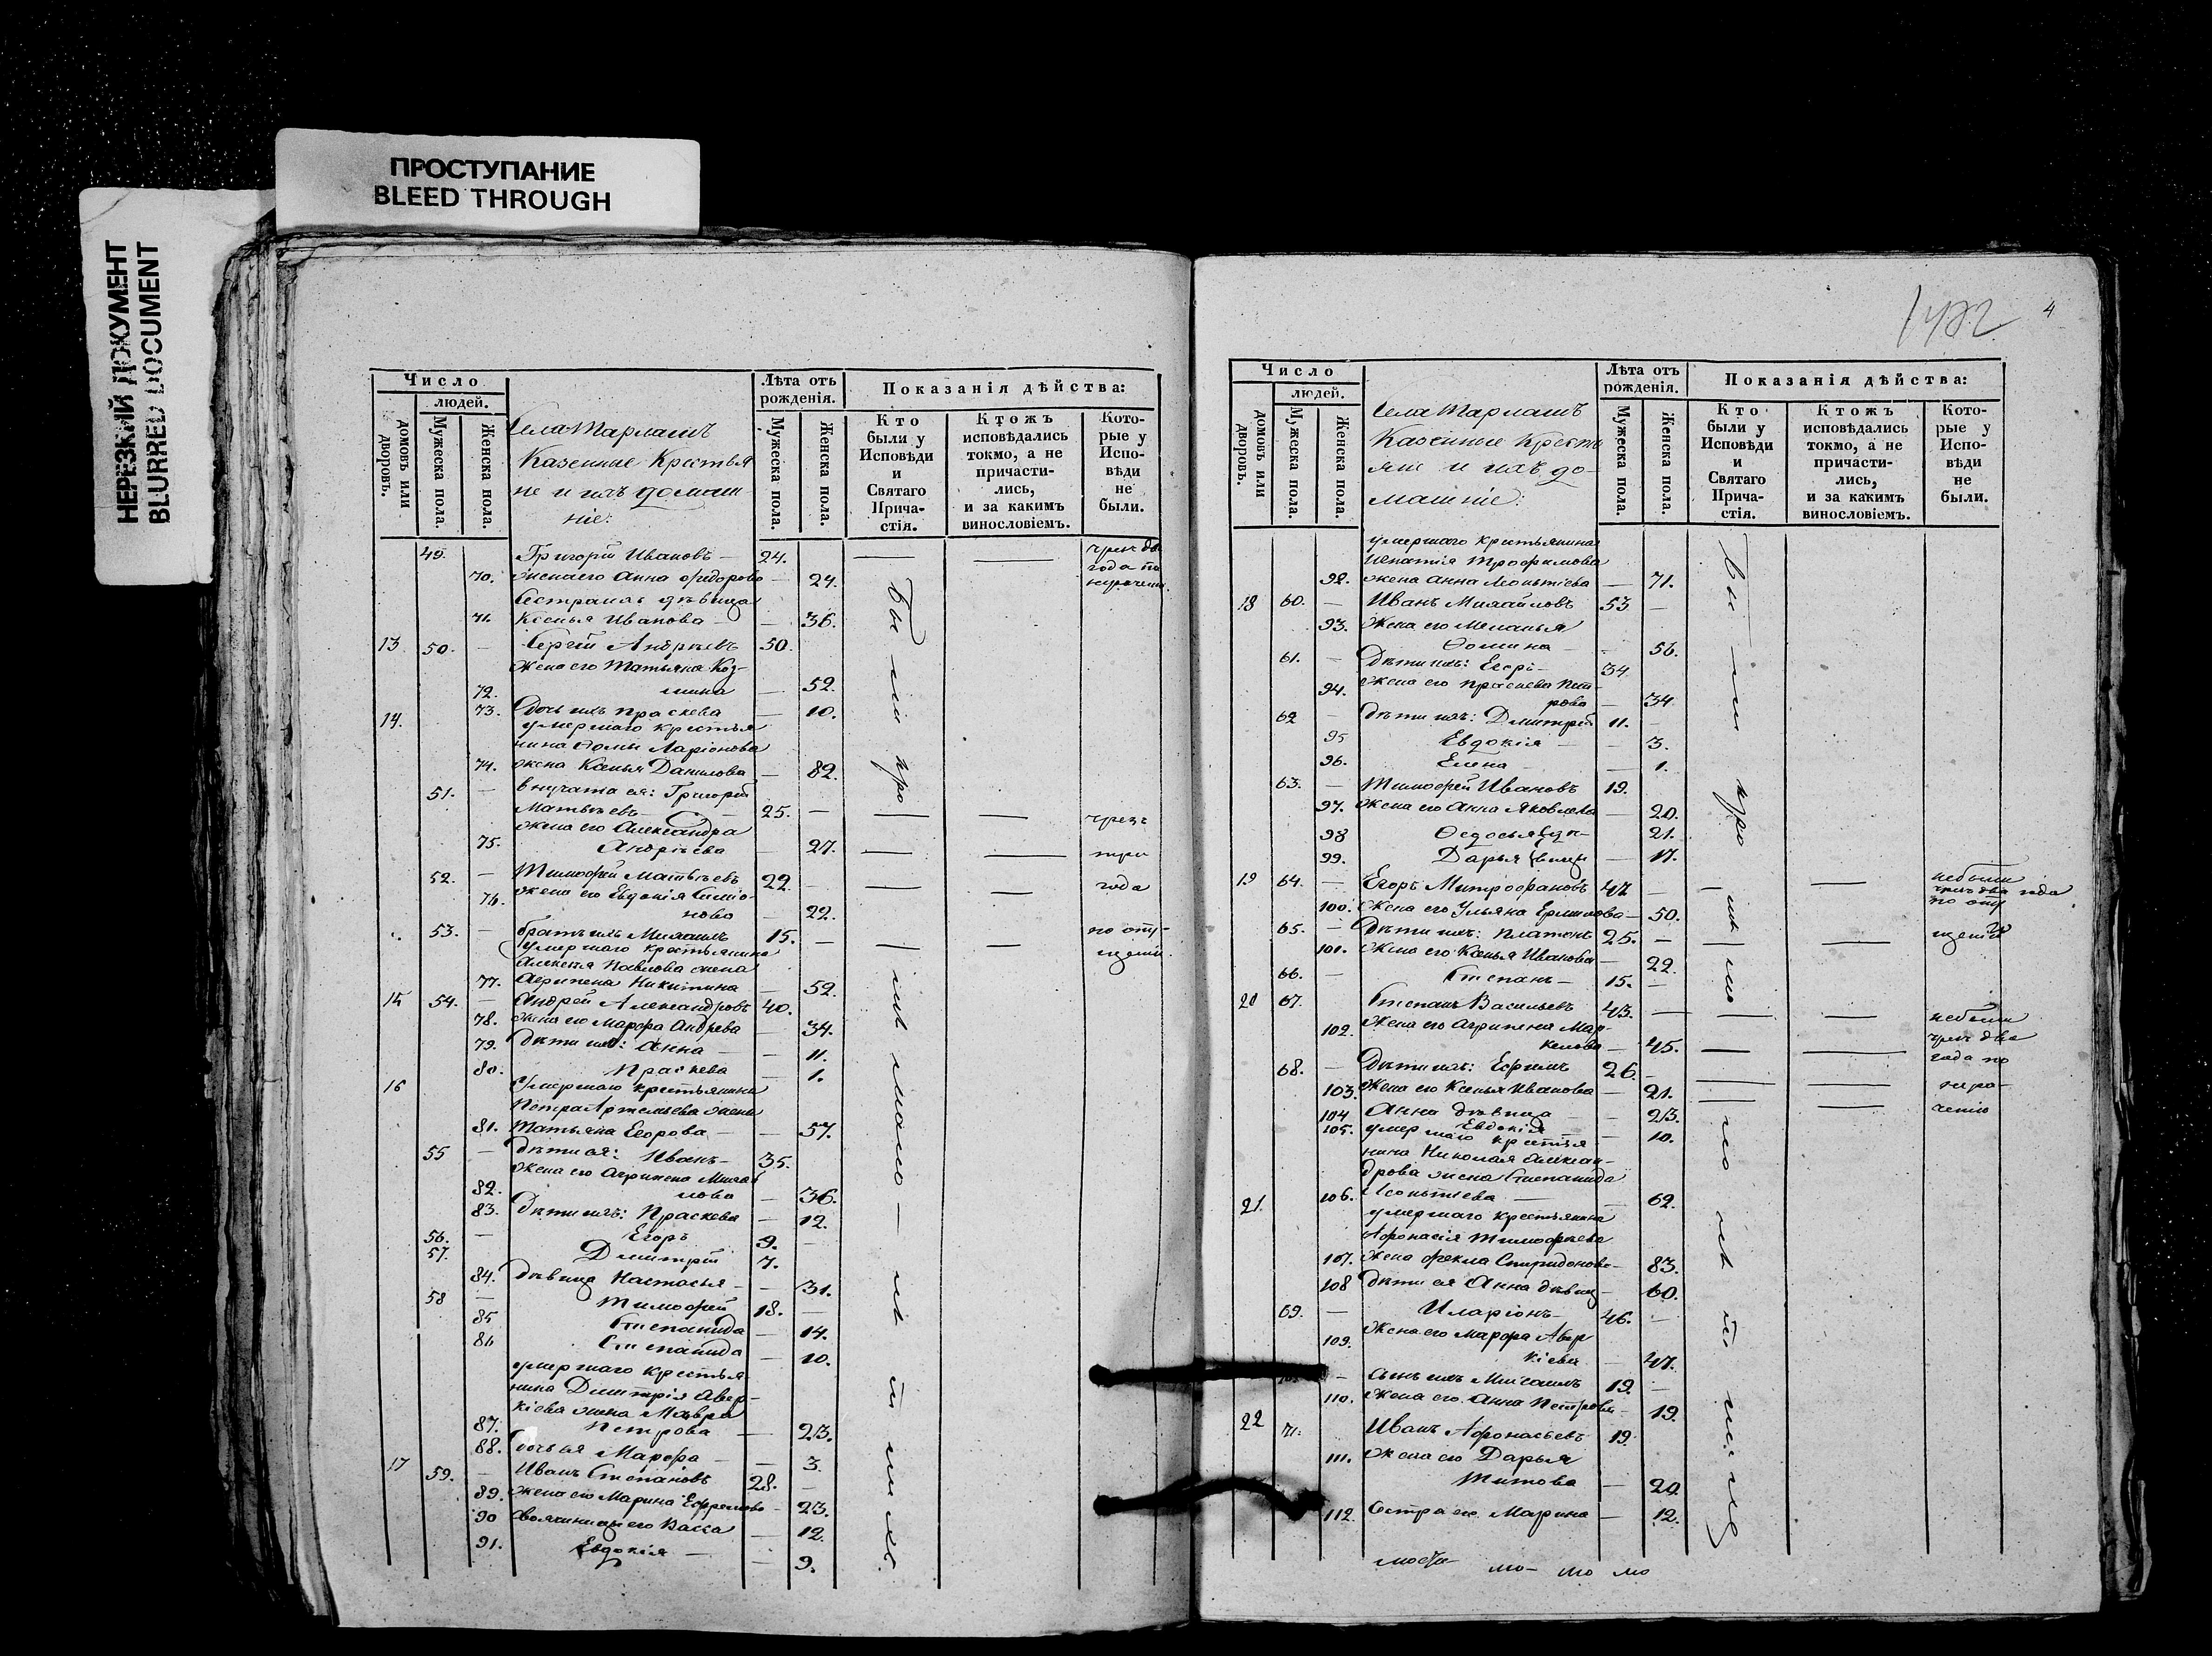 ПРОСТУПАНИЕ
BLEED THROUGH
НЕРЕЗКИЙ ДОКУМЕНТ
BLURRED DOCUMENT
Число
людей.
домовъ или дворовъ.
Мужеска пола.
Женска пола.
Села Тарлашъ
Казенные Крестья
не и ихъ домаш
ніе:
Лѣта отъ рожденія.
Мужеска пола.
Женска пола.
Показанія дѣйства:
Кто были у Исповѣди и Святаго Прича-стія.
Ктожъ исповѣдались токмо, а не причасти-лись, и за какимъ винословіемъ.
Кото-рые у Испо-вѣди не были.
49. Григорій Ивановъ — 24.
70. жена его Анна Фидорова — 24.
Сестра ихъ дѣвица
71. Ксенья Иванова — 36.
13 50. — Сергѣй Андреевъ 50.
жена его Татьяна Коз-
72. мина — 52.
73. Дочь ихъ Праскева — 10.
14. умершаго крестья
нина Фомы Ларіонова
74. жена Ксенья Данилова — 82.
51. — внучата ея: Григорій
Матвѣевъ 25. —
жена его Александра
75. Андрѣева 27.
52. — Тимофей Матвѣевъ 22. —
76. жена его Евдокія Симіо-
нова — 22.
53. — братъ ихъ Михаилъ 15. —
умершаго крестьянина
Алексѣя Павлова жена
77. Агрипена Никитина — 52.
15 54. — Андрей Александровъ 40.
78. жена его Марфа Андрева — 34.
79. дѣти ихъ: Анна — 11.
80. Праскева — 1.
16 Умершаго крестьянина
Петра Артемьева жена
81. Татьяна Егорова — 57.
55 — дѣти ея: Иванъ — 35.
жена его Агрипена Михай
82. лова — 36.
83. Дѣти ихъ: Праскева — 12.
56. — Егоръ 9. —
57. Дмитрій 7.
84. дѣвица Настасья — 31.
58 — Тимофей 18. —
85 Степанида — 14.
86 Степанида — 10.
умершаго крестья
нина Дмитрія Авер-
кіева жена Мавра
87. Петрова — 23.
88. дочь ея Марфа — 3.
17 59. — Иванъ Степановъ 28. —
89. жена его Марина Ефремова — 23.
90 Своячиницы его Васса — 12.
91. Евдокія — 9.
чрезъ
три
года
по опу-
щенію.
4
Число
людей.
домовъ или дворовъ.
Мужеска пола.
Женска пола.
Села Тарлашъ
Казенные Кресть
яне и ихъ до-
машніе:
Лѣта отъ рожденія.
Мужеска пола.
Женска пола.
Показанія дѣйства:
Кто были у Исповѣди и Святаго Прича-стія.
Ктожъ исповѣдались токмо, а не причасти-лись, и за какимъ винословіемъ.
Кото-рые у Испо-вѣди не были.
умершаго крестьянина
Игнатія Трофимова
92. жена Анна Леонтіева — 71.
18 60. — Иванъ Михайловъ 53 —
93. жена его Меланья
Фомина — 56.
61. — Дѣти ихъ: Егоръ — 34
94. жена его Праскева Пет-
рова — 34
62 — дѣти ихъ: Дмитрей 11. —
95 Евдокія — 3.
96. Елена — 1.
63. — Тимофей Ивановъ 19.
97. жена его Анна Яковлева — 20.
98 Ѳедосья 21.
99. Дарья — 17.
19 64. — Егоръ Митрофановъ 47 —
100. жена его Ульяна Ермилова — 50.
65. — Дѣти ихъ: Платонъ 25. —
101. жена его Ксенья Иванова — 22.
66. — Степанъ — 15. —
20 67. Степанъ Васильевъ 43. —
102. жена его Агрипена Мар-
келова — 45.
68. — Дѣти ихъ: Ефимъ 26.
103. жена его Ксенья Иванова — 21.
104 Анна дѣвица — 23.
105. Евдокія — 10.
умершаго крестья
нина Николая Алексан-
дрова жена Степанида
106. Леонтіева — 62.
21. умершаго крестьянина
Афонасія Тимофѣева
107. жена Фекла Спиридонова — 83.
108 дѣти ея Анна дѣвиц — 60.
69. — Иларіонъ — 46. —
109. жена его Марфа Авер
кіева — 47.
— сынъ ихъ Михаилъ 19. —
110. жена его Анна Петрова — 19.
22 71. Иванъ Афонасьевъ 19.
111. жена его Дарья
Титова — 20
112. Сестра его Марина — 12.
небыли
чрезъ два года
по опу
щенію
небыли
чрезъ два
года по